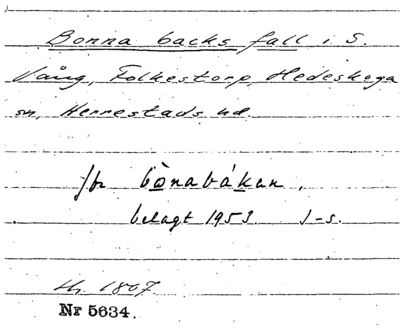 Bonna backs fall i S.
Vång, Folkestorp, Hedeskoga
sn, Herrestads hd.
/br bònabákan.
belagt 1953. I-s.
1807.
Nr 5634.